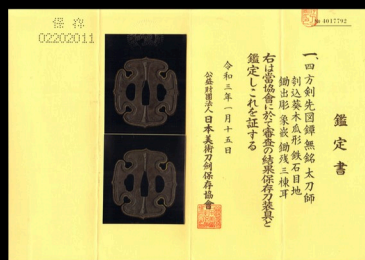 保存
02202011
№ 4017792
鑑定書
一、四方剣先図鐔 無銘 太刀師
刻込葵木瓜形 鉄石目地
鋤出彫 象嵌 鋤残三棟耳
右は當協會に於て審査の結果保存刀装具と
鑑定しこれを証する
令和三年一月十五日
公益財団法人 日本美術刀剣保存協會